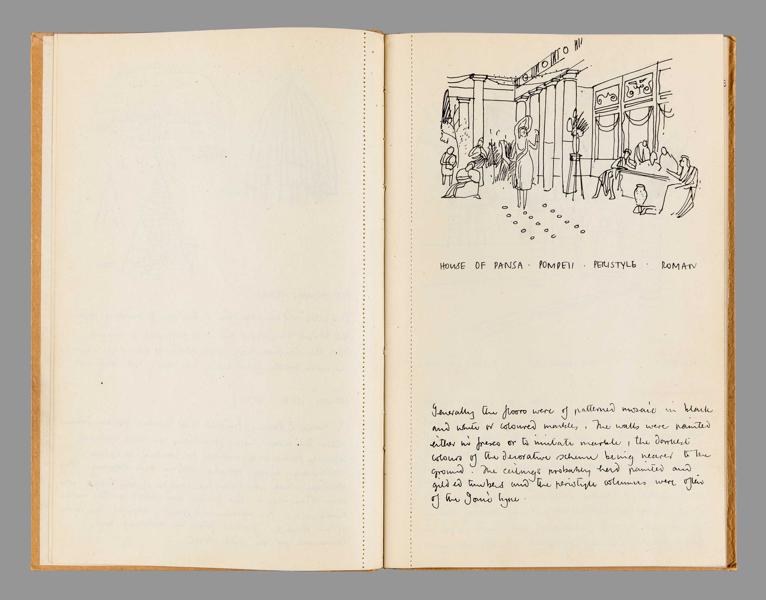 HOUSE OF PANSA · POMPEII · PERISTYLE · ROMAN
Generally the floors were of patterned mosaic in black
and white or coloured marbles. The walls were painted
either in fresco or to imitate marble, the darkest
colours of the decorative scheme being nearer to the
ground. The ceilings probably had painted and
gilded timbers and the peristyle columns were often
of the Ionic type.